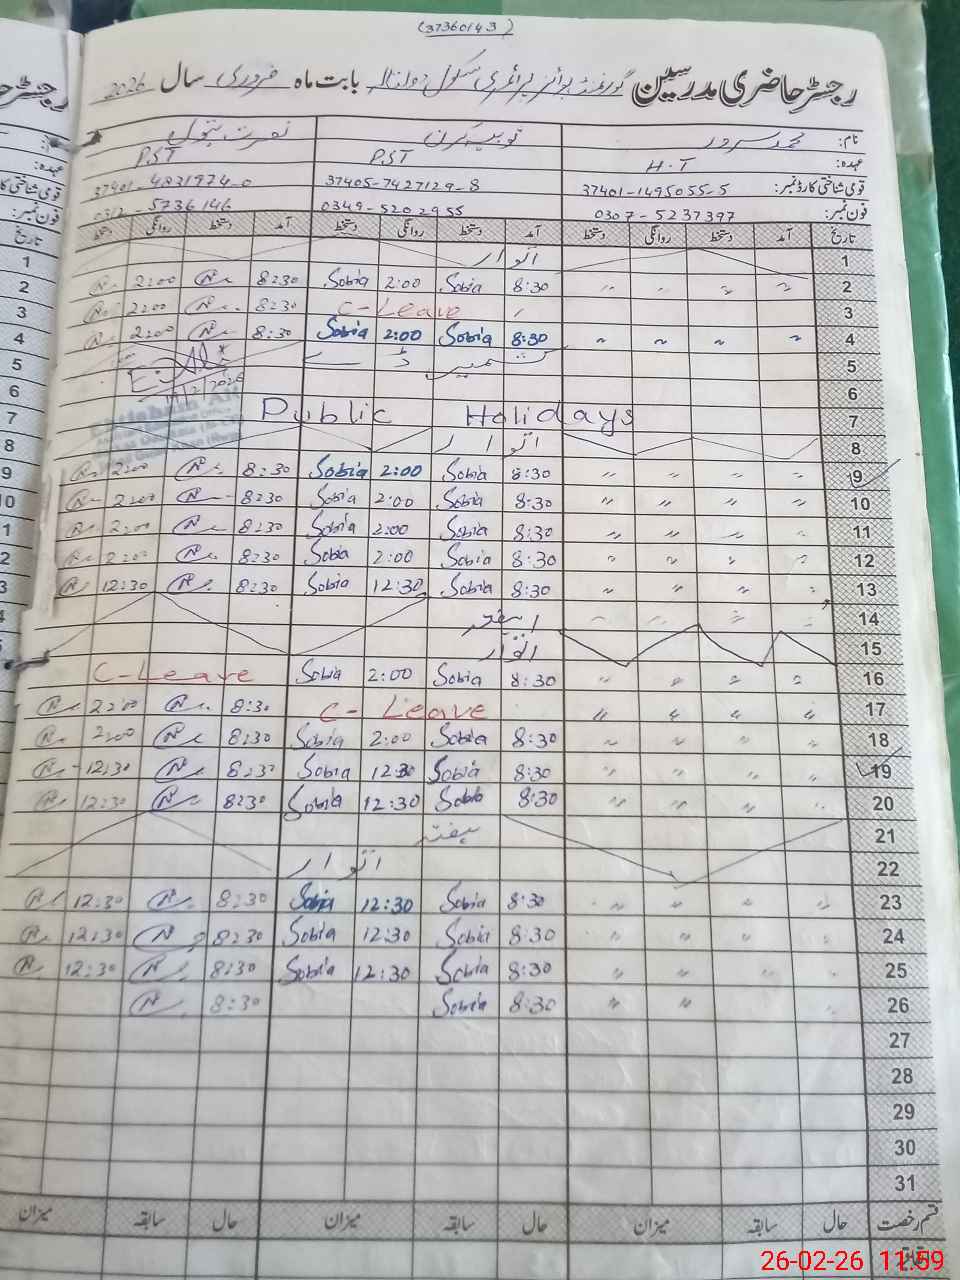 (37360143)
رجسٹر حاضری مدرسین گورنمنٹ بوائز پرائمری سکول دولتالہ بابت ماہ فروری سال 2026
نام: محمد سرور ثوبیہ کرن نصرت بتول
عہدہ: H.T PST PST
قومی شناختی کارڈ نمبر: 37401-1495055-5 37405-7427129-8 37401-4831974-0
فون نمبر: 0307-5237397 0349-5202955 0312-5736146
تاریخ آمد دستخط روانگی دستخط آمد دستخط روانگی دستخط آمد دستخط روانگی دستخط
1 اتوار
2 " " " " 8:30 Sobia 2:00 Sobia 8:30 2:00
3 C-Leave 8:30 2:00
4 " " " " 8:30 Sobia 2:00 Sobia 8:30 2:00
5 کشمیر ڈے
6
7 Public Holidays
8 اتوار
9 " " " " 8:30 Sobia 2:00 Sobia 8:30 2:00
10 " " " " 8:30 Sobia 2:00 Sobia 8:30 2:00
11 " " " " 8:30 Sobia 2:00 Sobia 8:30 2:00
12 " " " " 8:30 Sobia 2:00 Sobia 8:30 2:00
13 " " " " 8:30 Sobia 12:30 Sobia 8:30 12:30
14 " " " " ہفتہ
15 اتوار
16 " " " " 8:30 Sobia 2:00 Sobia C-Leave
17 " " " " C-Leave 8:30 2:00
18 " " " " 8:30 Sobia 2:00 Sobia 8:30 2:00
19 " " " " 8:30 Sobia 12:30 Sobia 8:30 12:30
20 " " " " 8:30 Sobia 12:30 Sobia 8:30 12:30
21 ہفتہ
22 اتوار
23 " " " " 8:30 Sobia 12:30 Sobia 8:30 12:30
24 " " " " 8:30 Sobia 12:30 Sobia 8:30 12:30
25 " " " " 8:30 Sobia 12:30 Sobia 8:30 12:30
26 " " " 8:30 Sobia 8:30
27
28
29
30
31
قسم رخصت حال سابقہ میزان حال سابقہ میزان حال سابقہ میزان
26-02-26 11:59